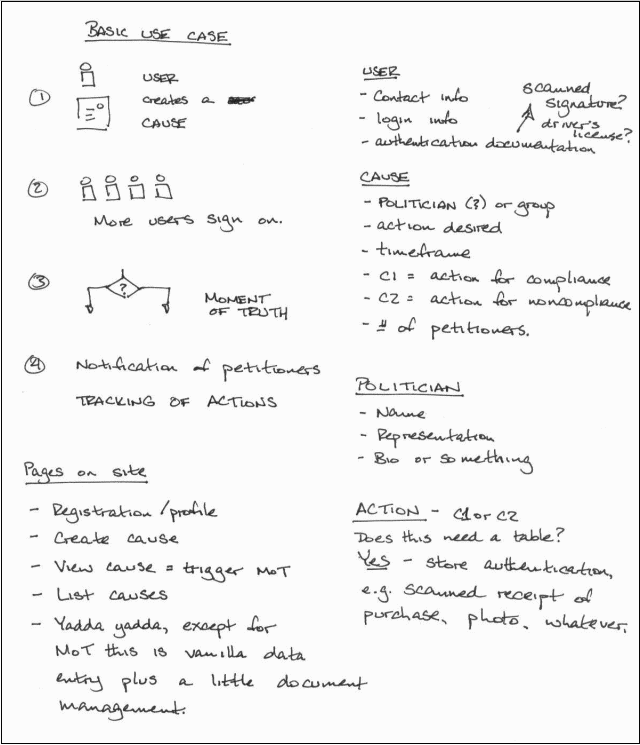 BASIC USE CASE
① USER
creates a
CAUSE
② More users sign on.
③ ?
MOMENT
OF TRUTH
④ Notification of petitioners
TRACKING OF ACTIONS
Pages on site
- Registration/profile
- Create cause
- View cause = trigger MoT
- List causes
- Yadda yadda, except for
MoT this is vanilla data
entry plus a little document
management.
USER
- Contact info
- login info
- authentication documentation
scanned
signature?
driver's
license?
CAUSE
- POLITICIAN (?) or group
- action desired
- timeframe
- C1 = action for compliance
- C2 = action for noncompliance
- # of petitioners.
POLITICIAN
- Name
- Representation
- Bio or something
ACTION - C1 or C2
Does this need a table?
Yes - store authentication,
e.g. scanned receipt of
purchase, photo, whatever.